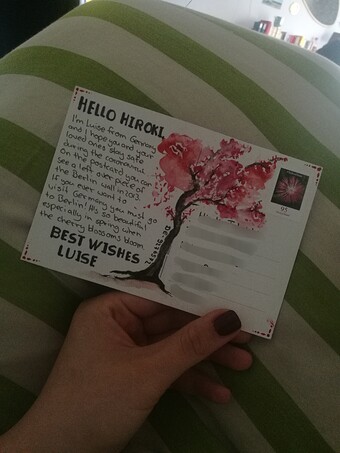 HELLO HIROKI,
I'm Luise from Germany
and I hope you and your
loved ones stay safe
during the coronavirus.
On the postcard you can
see a left over piece of
the Berlin wall in 2013.
If you ever want to
visit Germany you must go
to Berlin! It's so beautiful
especially in spring when
the cherry blossoms bloom.
BEST WISHES
LUISE
91